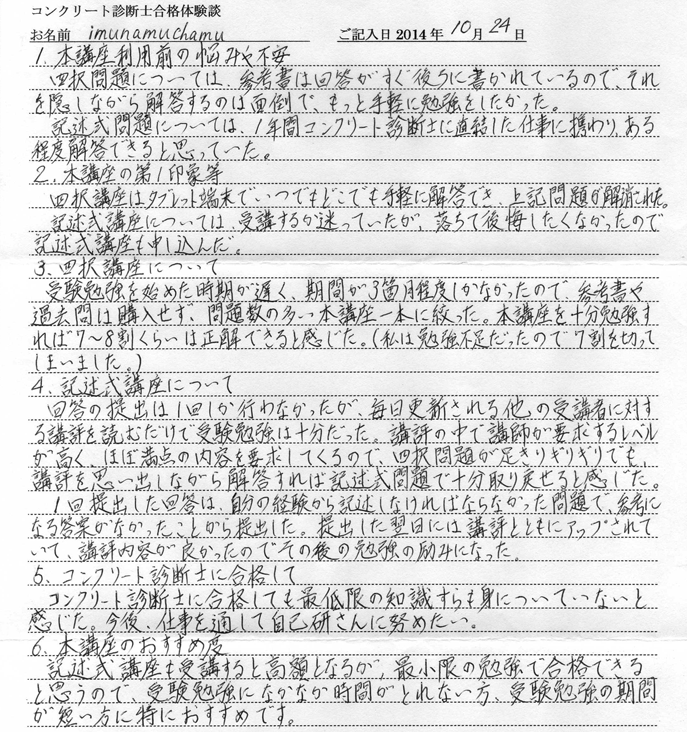 コンクリート診断士合格体験談
お名前 imunamuchamu ご記入日 2014 年 10 月 24 日
1. 本講座利用前の悩みや不安
四択問題については、参考書は回答がすぐ後ろに書かれているので、それ
を隠しながら解答するのは面倒で、もっと手軽に勉強をしたかった。
記述式問題については、1年間コンクリート診断士に直結した仕事に携わり、ある
程度解答できると思っていた。
2. 本講座の第1印象等
四択講座はタブレット端末でいつでもどこでも手軽に解答でき、上記問題が解消された。
記述式講座については、受講するか迷っていたが、落ちて後悔したくなかったので
記述式講座も申し込んだ。
3. 四択講座について
受験勉強を始めた時期が遅く、期間が3箇月程度しかなかったので、参考書や
過去問は購入せず、問題数の多い本講座一本に絞った。本講座を十分勉強す
れば7~8割くらいは正解できると感じた。(私は勉強不足だったので7割を切って
しまいました。)
4. 記述式講座について
回答の提出は1回しか行わなかったが、毎日更新される他の受講者に対す
る講評を読むだけで受験勉強は十分だった。講評の中で講師が要求するレベル
が高く、ほぼ満点の内容を要求してくるので、四択問題が足きりギリギリでも、
講評を思い出しながら解答すれば記述式問題で十分取り戻せると感じた。
1回提出した回答は、自分の経験から記述しなければならなかった問題で、参考に
なる答案がなかったことから提出した。提出した翌日には講評とともにアップされて
いて、講評内容が良かったのでその後の勉強の励みになった。
5. コンクリート診断士に合格して
コンクリート診断士に合格しても最低限の知識すらも身についていないと
感じた。今後、仕事を通して自己研さんに努めたい。
6. 本講座のおすすめ度
記述式講座も受講すると高額となるが、最小限の勉強で合格できる
と思うので、受験勉強になかなか時間がとれない方、受験勉強の期間
が短い方に特におすすめです。